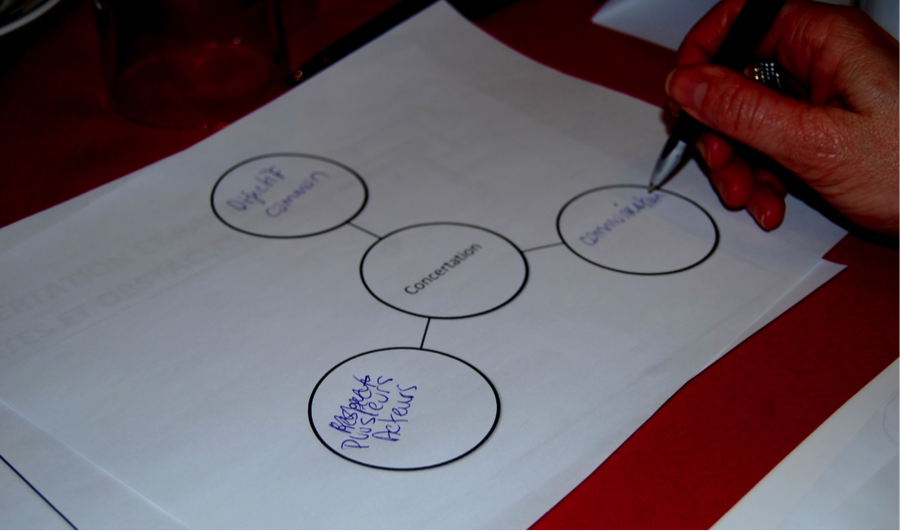 Objectif
Commun
Concertation
communication
Plusieurs
Acteurs